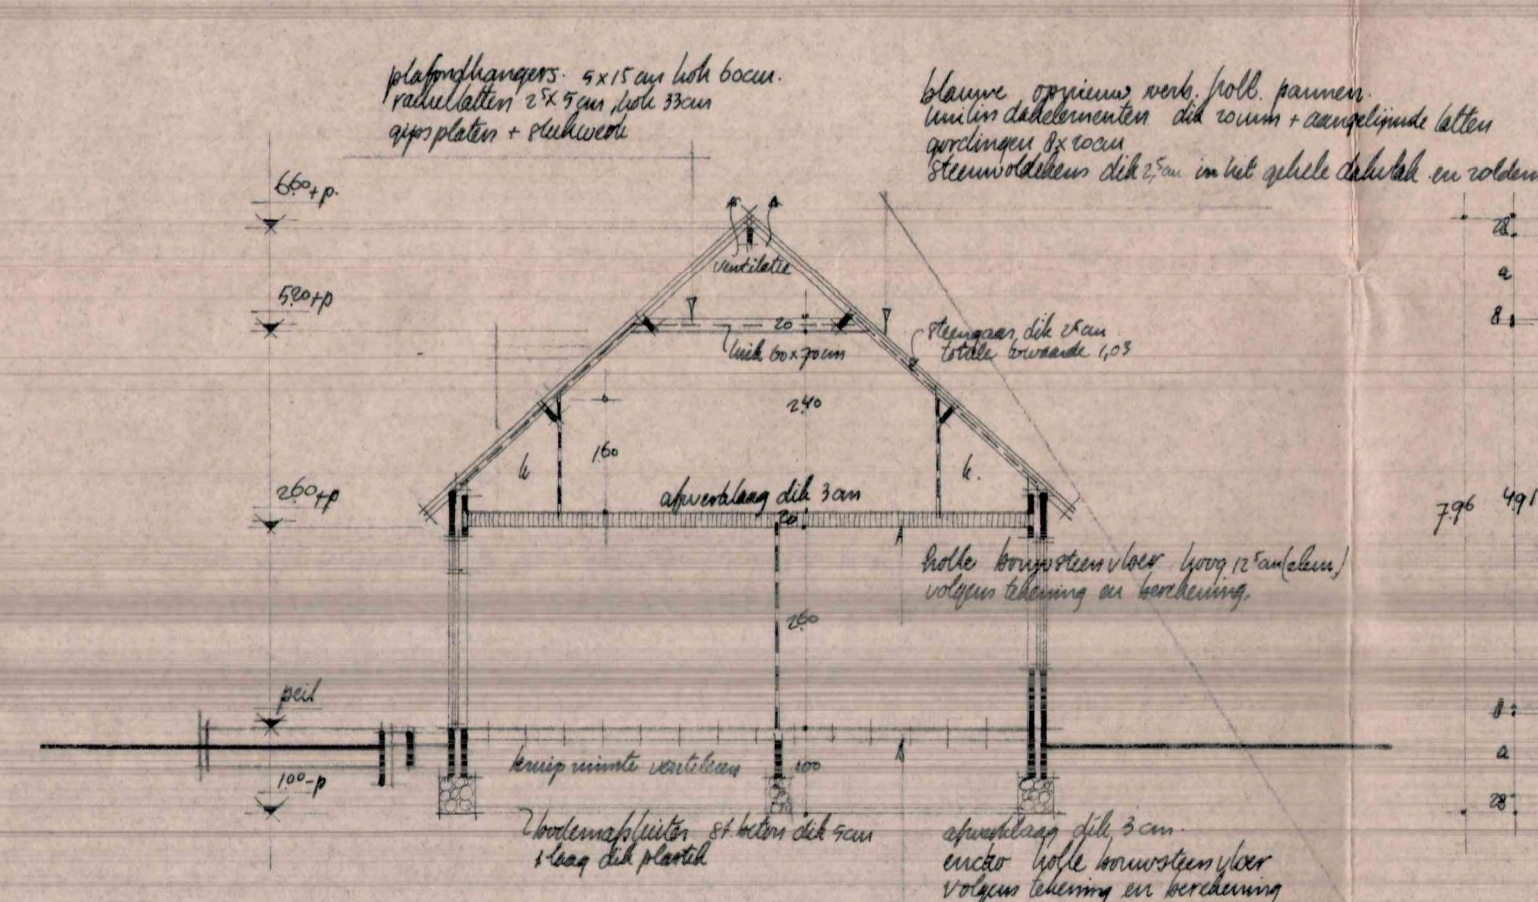 plafondhangers. 5x15 cm hoh 60cm.
rachellatten 2⁵x5cm, hoh 33cm
gipsplaten + stukwerk
blauwe opnieuw verb. holl. pannen.
dakelementen dik 20mm + aangelijmde latten
gordingen 8x20cm
steenwoldekens dik 2,⁵cm in het gehele dakvlak en zolder
660+p.
520+p
260+p
peil
100-p
ventilatie
20
luik 60x70cm
steengaas dik 2⁵cm
totale 1,03
240
160
k
k.
afwerklaag dik 3cm
20
holle bouwsteenvloer hoog 12⁵cm (elem.)
volgens tekening en berekening.
260
kruipruimte ventileren
100
bodemafsluiter st. beton dik 5cm
1 laag dik plastik
afwerklaag dik 3cm.
holle bouwsteenvloer
volgens tekening en berekening
28
a
8
796
491
8
a
28